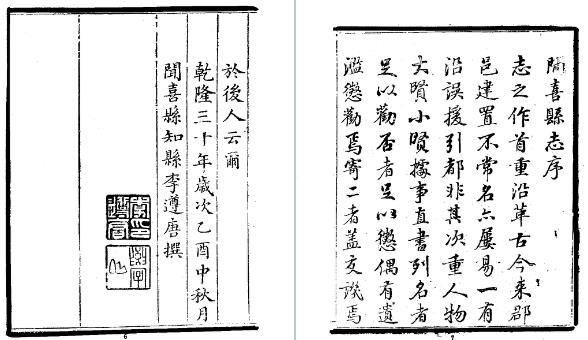 於後人云爾
乾隆三十年歲次乙酉中秋月
聞喜縣知縣李遵唐撰
6
聞喜縣志序
志之作首重沿革古今來郡
邑建置不常名亦屢易一有
沿誤援引都非其次重人物
大賢小賢據事直書列名者
足以勸否者足以懲偶有遺
濫懲勸焉寄二者蓋交譏焉
7